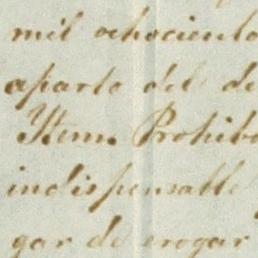 mil ochociento
aparte del de
Ytem. Prohibo
indispensable
gar de erogar